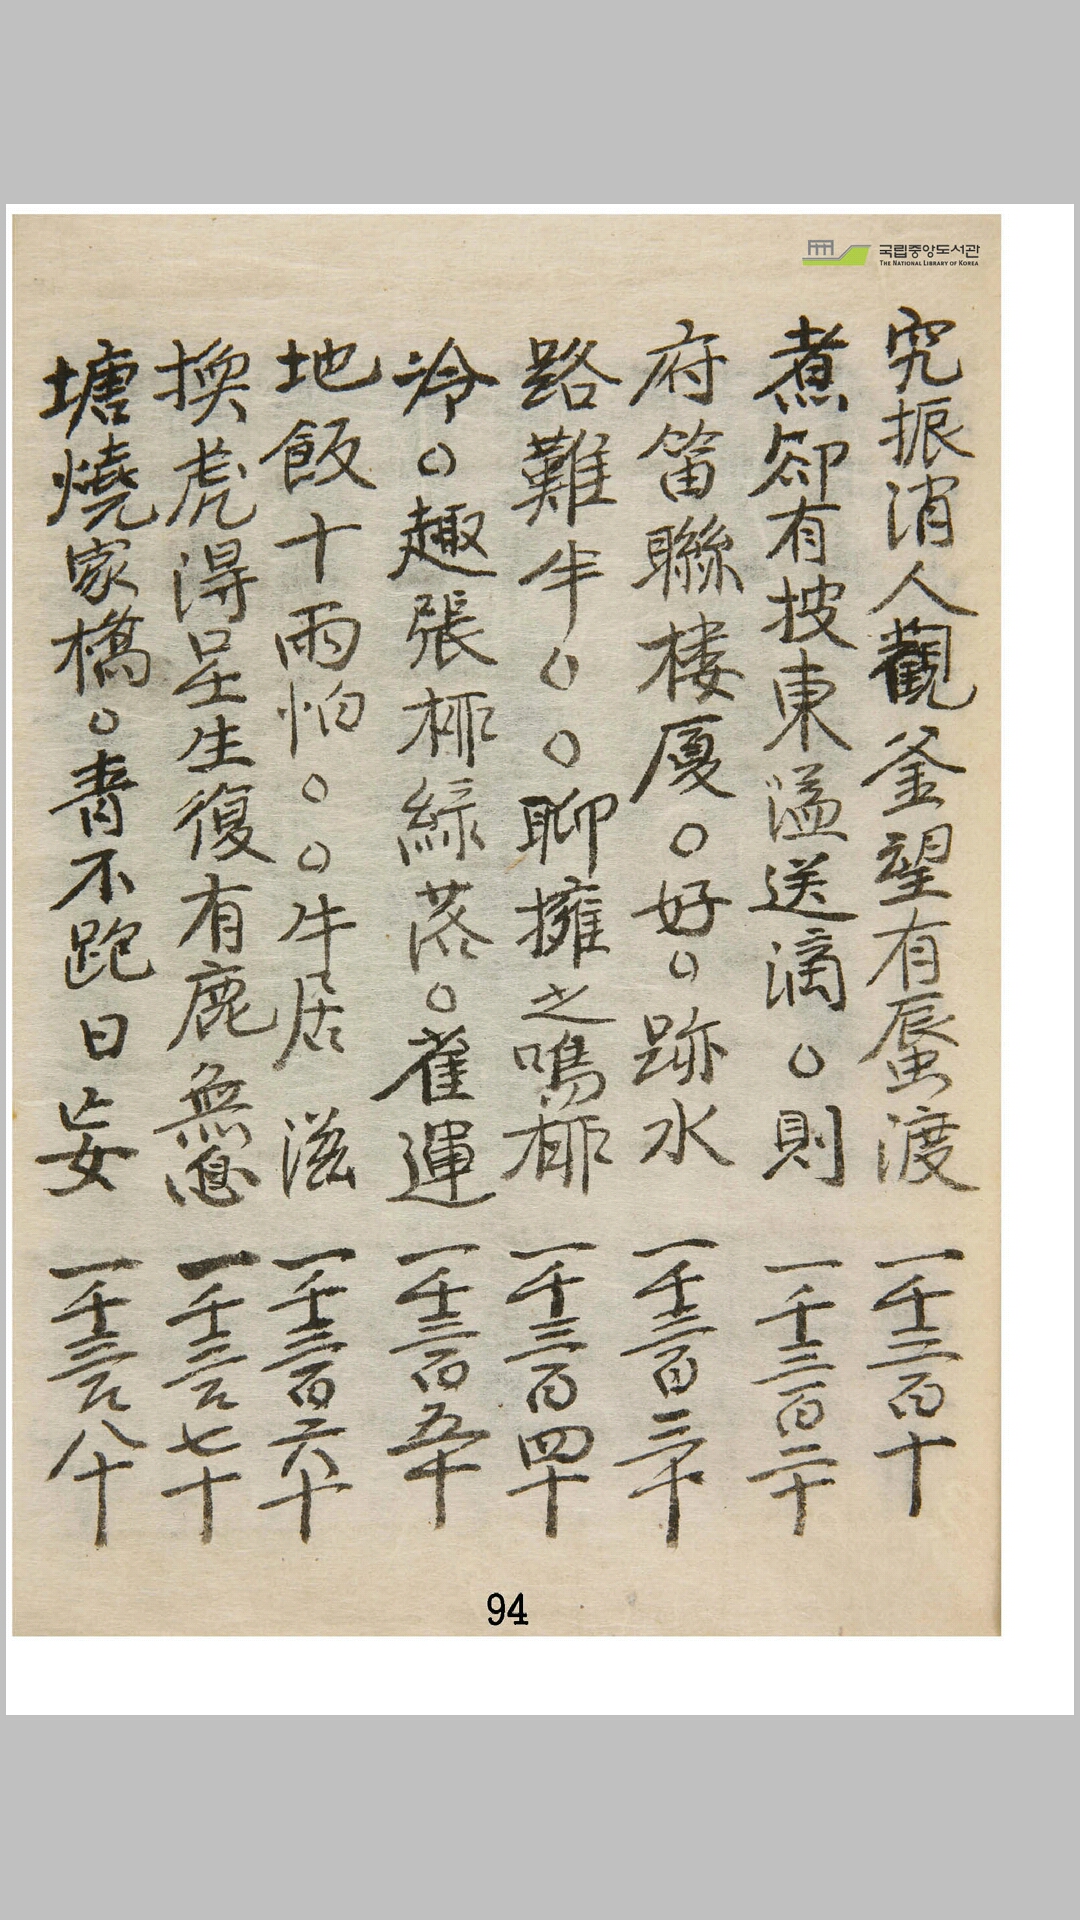 국립중앙도서관
THE NATIONAL LIBRARY OF KOREA
究振消人觀釜望有蜃渡 一千三百十
煮卻有披東溢送滴○則 一千三百二十
府笛聯樓厦○好○跡水 一千三百三十
路難牛○○聊擁之鳴 一千三百四十
冷○趣張極綠落○雀運 一千三百五十
地飯十雨怕○○牛居滋 一千三百六十
換虎得星生復有鹿無 一千三百七十
塘燒家橋○青不跑日妄 一千三百八十
94